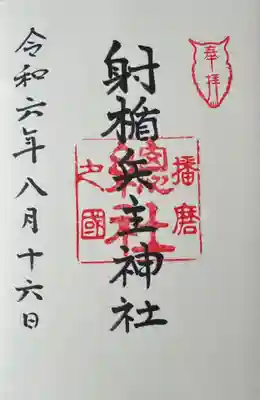 奉拝
播磨
射楯兵主神社
總社
之國
令和六年八月十六日